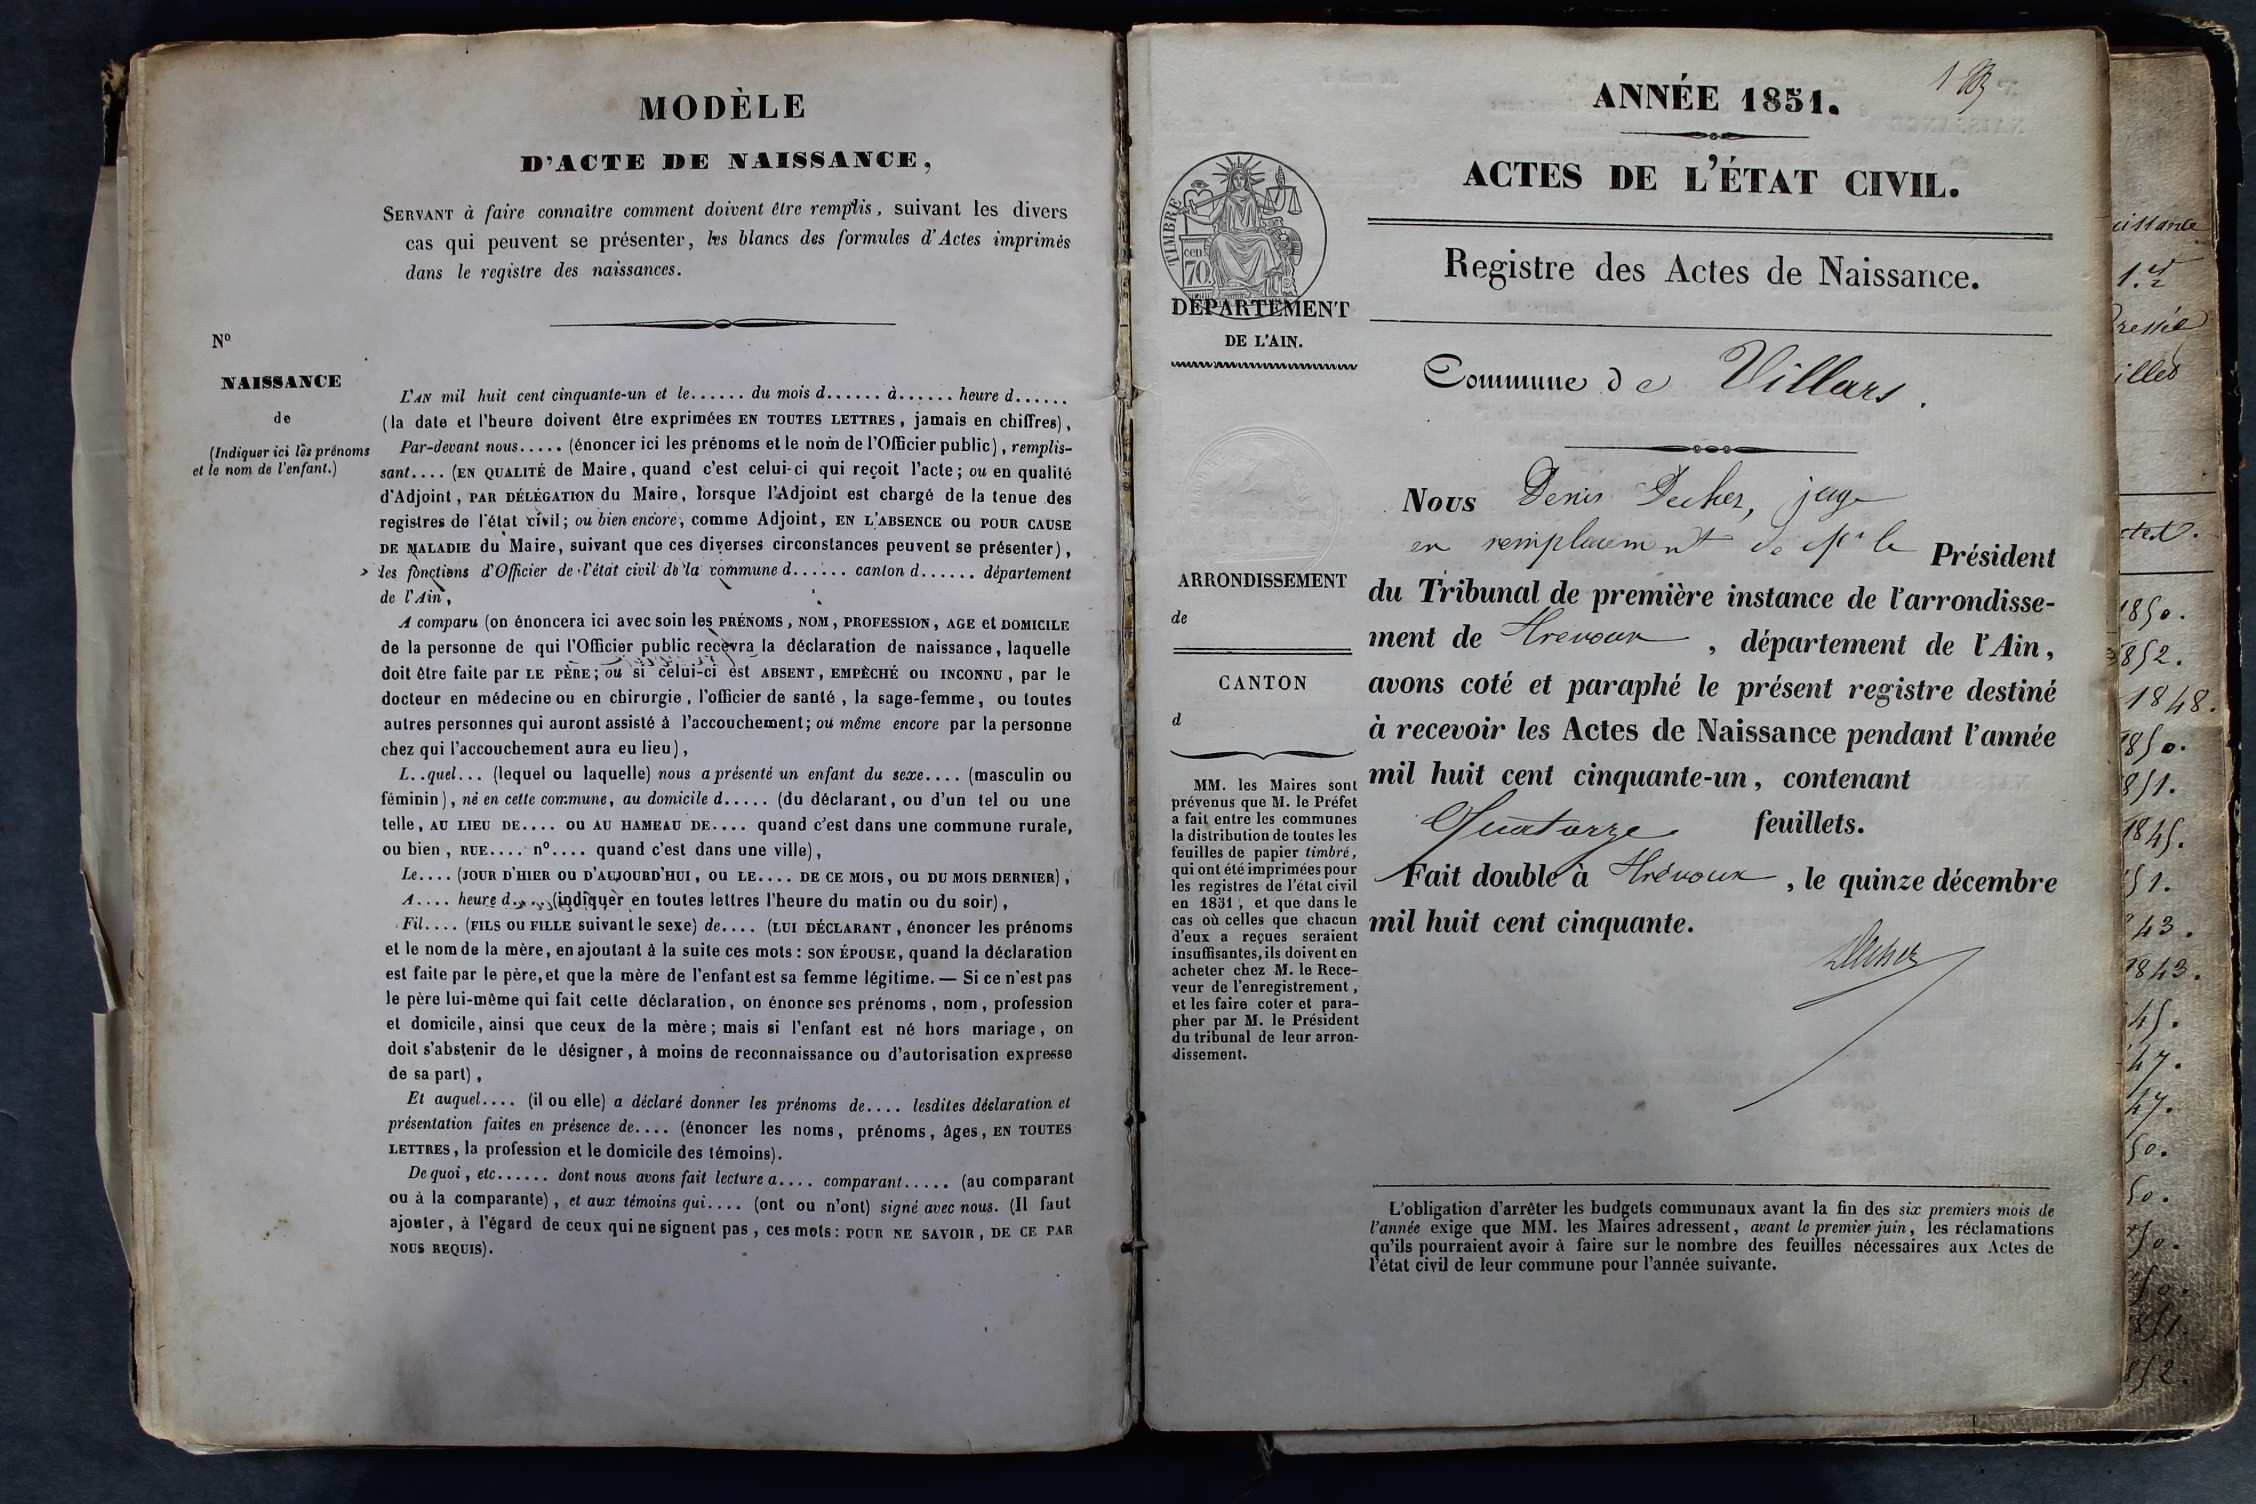 MODÈLE
D'ACTE DE NAISSANCE,
SERVANT à faire connaître comment doivent être remplis, suivant les divers
cas qui peuvent se présenter, les blancs des formules d'Actes imprimés
dans le registre des naissances.
N°
NAISSANCE
de
(Indiquer ici les prénoms
et le nom de l'enfant.)
L'AN mil huit cent cinquante-un et le...... du mois d...... à...... heure d......
(la date et l'heure doivent être exprimées EN TOUTES LETTRES, jamais en chiffres),
Par-devant nous..... (énoncer ici les prénoms et le nom de l'Officier public), remplis-
sant.... (EN QUALITÉ de Maire, quand c'est celui-ci qui reçoit l'acte; ou en qualité
d'Adjoint, PAR DÉLÉGATION du Maire, lorsque l'Adjoint est chargé de la tenue des
registres de l'état civil; ou bien encore, comme Adjoint, EN L'ABSENCE OU POUR CAUSE
DE MALADIE du Maire, suivant que ces diverses circonstances peuvent se présenter),
les fonctions d'Officier de l'état civil de la commune d...... canton d...... département
de l'Ain,
A comparu (on énoncera ici avec soin les PRÉNOMS, NOM, PROFESSION, AGE et DOMICILE
de la personne de qui l'Officier public recevra la déclaration de naissance, laquelle
doit être faite par LE PÈRE; ou si celui-ci est ABSENT, EMPÊCHÉ OU INCONNU, par le
docteur en médecine ou en chirurgie, l'officier de santé, la sage-femme, ou toutes
autres personnes qui auront assisté à l'accouchement; ou même encore par la personne
chez qui l'accouchement aura eu lieu),
L..quel... (lequel ou laquelle) nous a présenté un enfant du sexe.... (masculin ou
féminin), né en cette commune, au domicile d..... (du déclarant, ou d'un tel ou une
telle, AU LIEU DE.... OU AU HAMEAU DE.... quand c'est dans une commune rurale,
ou bien, RUE.... n°.... quand c'est dans une ville),
Le.... (JOUR D'HIER OU D'AUJOURD'HUI, OU LE.... DE CE MOIS, OU DU MOIS DERNIER),
A.... heure d..... (indiquer en toutes lettres l'heure du matin ou du soir),
Fil.... (FILS OU FILLE suivant le sexe) de.... (LUI DÉCLARANT, énoncer les prénoms
et le nom de la mère, en ajoutant à la suite ces mots: SON ÉPOUSE, quand la déclaration
est faite par le père, et que la mère de l'enfant est sa femme légitime. — Si ce n'est pas
le père lui-même qui fait cette déclaration, on énonce ses prénoms, nom, profession
et domicile, ainsi que ceux de la mère; mais si l'enfant est né hors mariage, on
doit s'abstenir de le désigner, à moins de reconnaissance ou d'autorisation expresse
de sa part),
Et auquel.... (il ou elle) a déclaré donner les prénoms de.... lesdites déclaration et
présentation faites en présence de.... (énoncer les noms, prénoms, âges, EN TOUTES
LETTRES, la profession et le domicile des témoins).
De quoi, etc...... dont nous avons fait lecture a.... comparant..... (au comparant
ou à la comparante), et aux témoins qui.... (ont ou n'ont) signé avec nous. (Il faut
ajouter, à l'égard de ceux qui ne signent pas, ces mots: POUR NE SAVOIR, DE CE PAR
NOUS REQUIS).
1
ANNÉE 1851.
ACTES DE L'ÉTAT CIVIL.
Registre des Actes de Naissance.
TIMBRE
70 cen
DÉPARTEMENT
DE L'AIN.
Commune de Villars.
Nous Denis Decher, juge
en remplacement de Mr le Président
du Tribunal de première instance de l'arrondisse-
ment de Trevoux, département de l'Ain,
avons coté et paraphé le présent registre destiné
à recevoir les Actes de Naissance pendant l'année
mil huit cent cinquante-un, contenant
Quatorze feuillets.
Fait double à Trévoux, le quinze décembre
mil huit cent cinquante.
Decher
ARRONDISSEMENT
de
CANTON
d
MM. les Maires sont
prévenus que M. le Préfet
a fait entre les communes
la distribution de toutes les
feuilles de papier timbré,
qui ont été imprimées pour
les registres de l'état civil
en 1851, et que dans le
cas où celles que chacun
d'eux a reçues seraient
insuffisantes, ils doivent en
acheter chez M. le Rece-
veur de l'enregistrement,
et les faire coter et para-
pher par M. le Président
du tribunal de leur arron-
dissement.
L'obligation d'arrêter les budgets communaux avant la fin des six premiers mois de
l'année exige que MM. les Maires adressent, avant le premier juin, les réclamations
qu'ils pourraient avoir à faire sur le nombre des feuilles nécessaires aux Actes de
l'état civil de leur commune pour l'année suivante.
1850.
852.
1848.
1850.
851.
1845.
51.
43.
1843.
45.
47.
47.
50.
50.
50.
50.
851.
852.